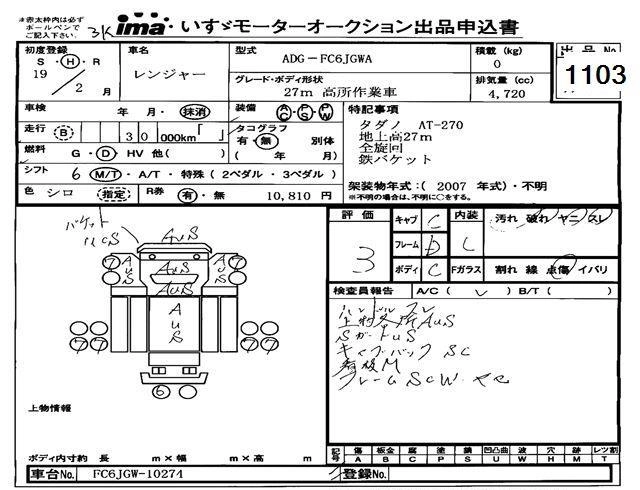 ※赤太枠内は必ず
ボールペンで
ご記入下さい。
3K
ima いすゞモーターオークション出品申込書
初度登録
S・H・R
19
2 月
車名
レンジャー
型式
ADG-FC6JGWA
グレード・ボディ形状
27m 高所作業車
積載 (kg)
0
排気量 (cc)
4,720
出品No
1103
車検 年 月・抹消
装備 AC・PS・PW
走行 B 30 000km「 」
タコグラフ 有・無 別体
( 年 月)
燃料 G・D・HV 他( )
シフト 6 M/T・A/T・特殊(2ペダル・3ペダル)
色 シロ 指定 R券 有・無 10,810 円
特記事項
タダノ AT-270
地上高27m
全旋回
鉄バケット
架装物年式:( 2007 年式)・不明
※不明の場合は、不明に○をする。
バケット
AuS
AuS
AuS
AuS
AuS
6
評価
3
キャブ C
フレーム D
ボディ C
内装 C
汚れ 破れ ヤニ スレ
Fガラス 割れ 線 点傷 イバリ
検査員報告 A/C( ) B/T( )
ハンドルスレ
上物各所AuS
SガードuS
キャブバック SC
看板M
フレームScW ヤセ
上物情報
ボディ内寸約 長 m×幅 m×高 m
記号 傷 板金 腐 塗 錆 凹凸曲 波 穴 跡 レツ割
A B C P S U W H M T
車台No. FC6JGW-10274
登録No.